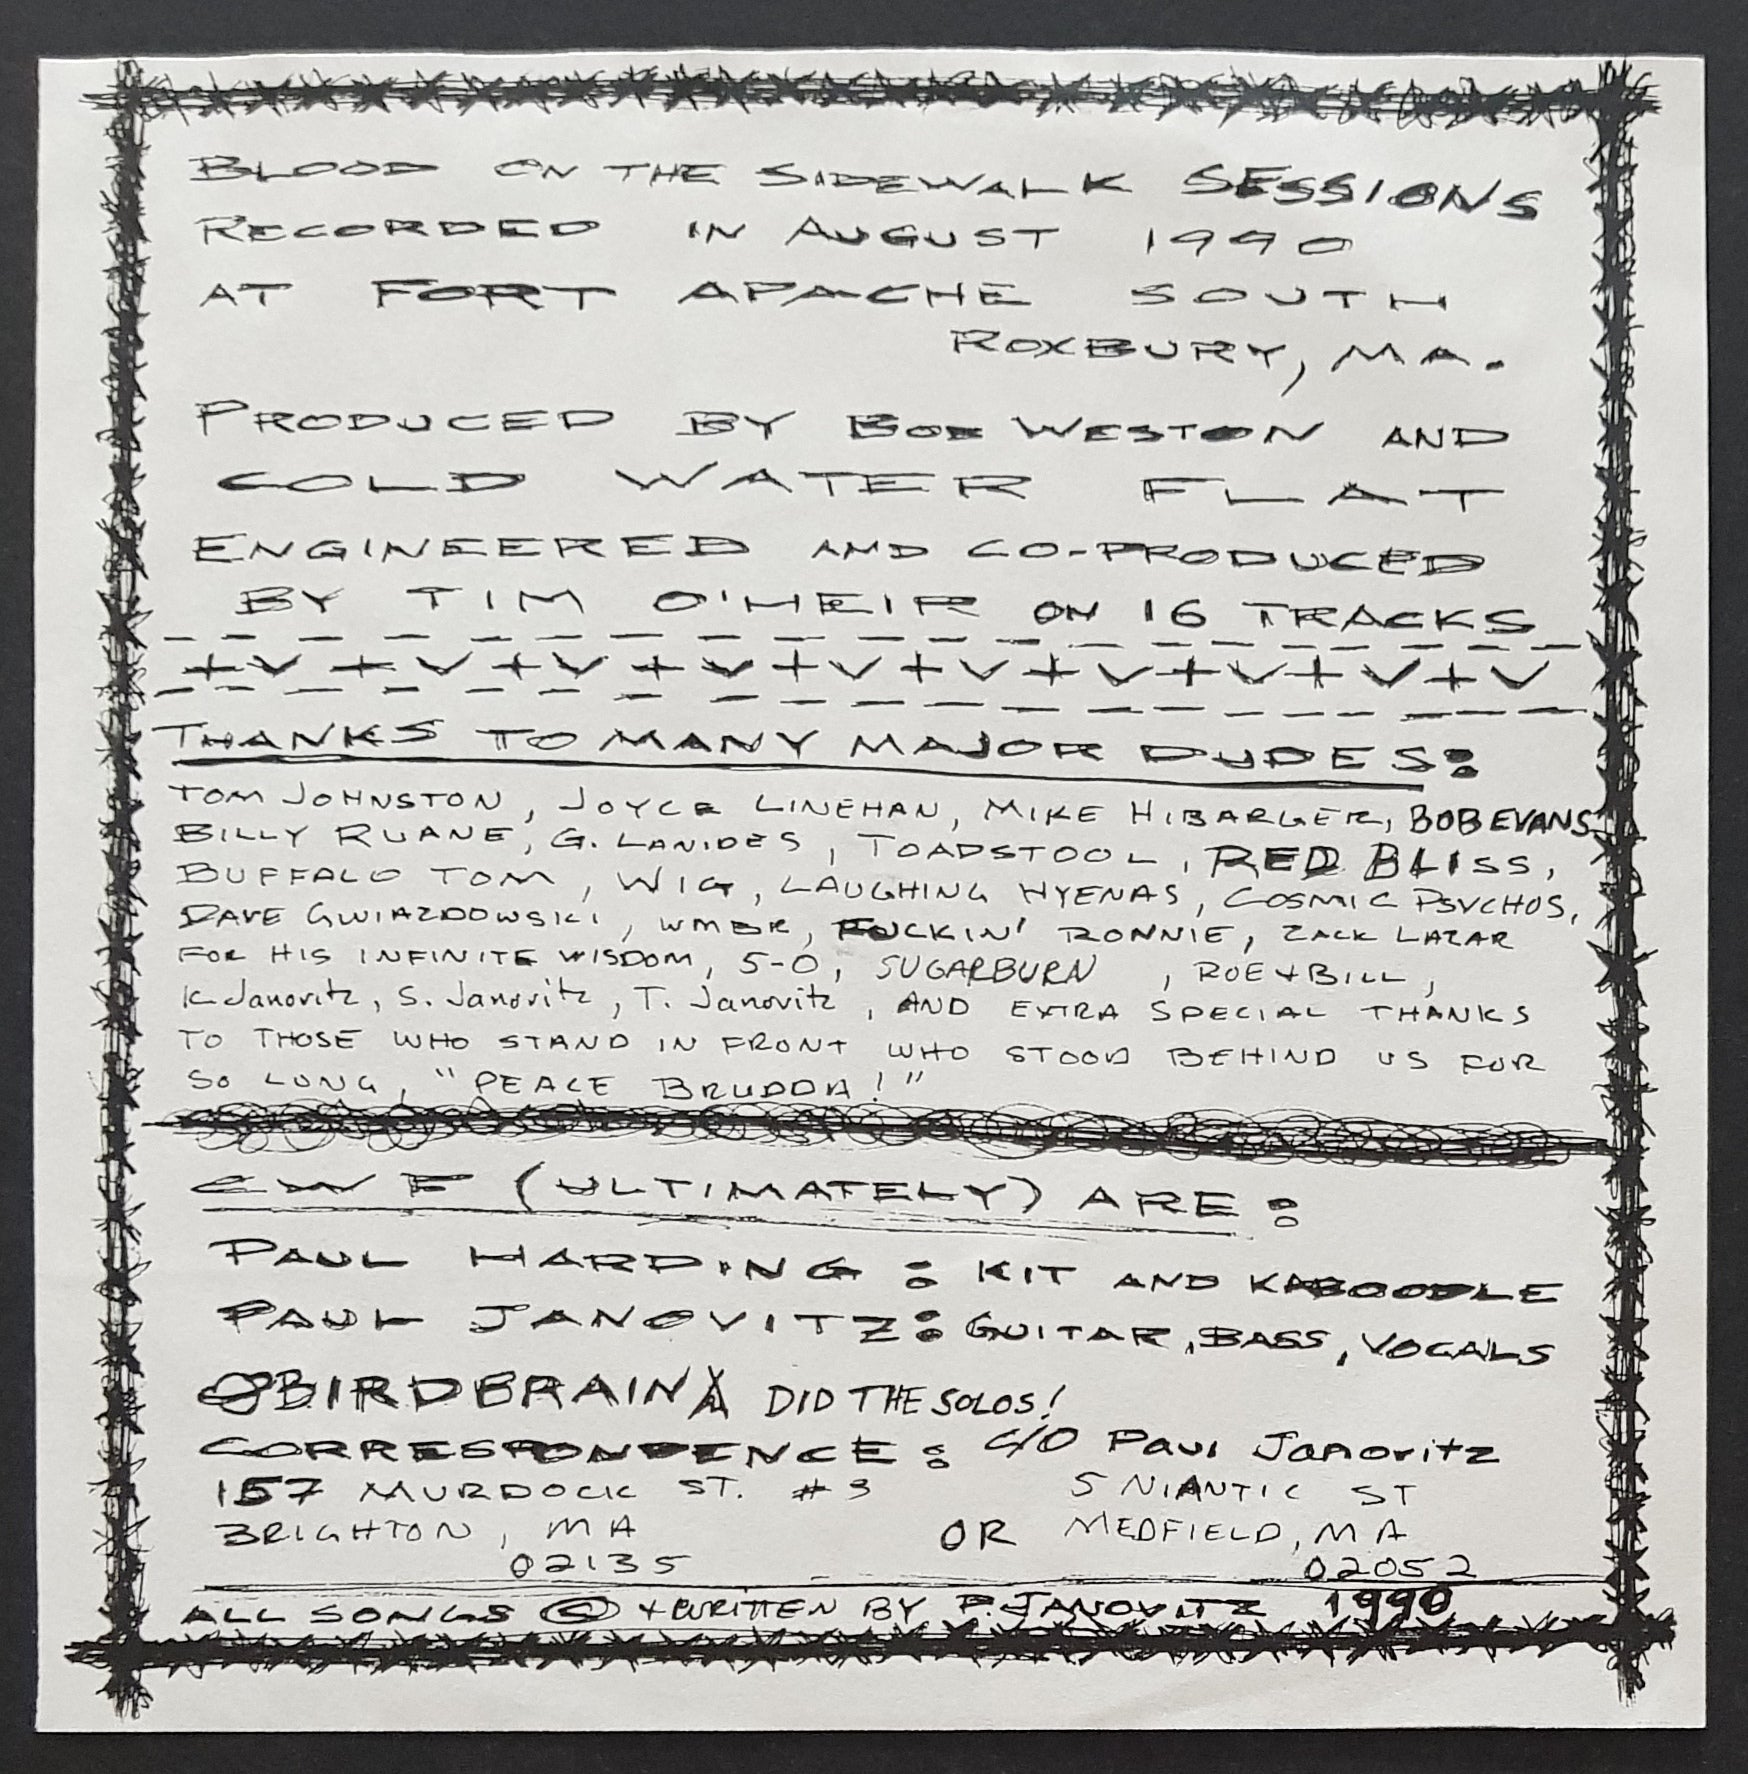 BLOOD ON THE SIDEWALK SESSIONS
RECORDED IN AUGUST 1990
AT FORT APACHE SOUTH
ROXBURY, MA.
PRODUCED BY BOB WESTON AND
COLD WATER FLAT
ENGINEERED AND CO-PRODUCED
BY TIM O'HEIR ON 16 TRACKS
+ V + V + V + V + V + V + V + V + V + V
THANKS TO MANY MAJOR DUDES:
TOM JOHNSTON, JOYCE LINEHAN, MIKE HIBARGER, BOB EVANS
BILLY RUANE, G. LANIDES, TOADSTOOL, RED BLISS,
BUFFALO TOM, WIG, LAUGHING HYENAS, COSMIC PSYCHOS,
DAVE GWIAZDOWSKI, WMBR, FUCKIN' RONNIE, ZACK LAZAR
FOR HIS INFINITE WISDOM, 5-0, SUGARBURN, ROE + BILL,
K. Janovitz, S. Janovitz, T. Janovitz, AND EXTRA SPECIAL THANKS
TO THOSE WHO STAND IN FRONT WHO STOOD BEHIND US FOR
SO LONG, "PEACE BRUDDA!"
CWF (ULTIMATELY) ARE:
PAUL HARDING: KIT AND KABOODLE
PAUL JANOVITZ: GUITAR, BASS, VOCALS
BIRDBRAIN DID THE SOLOS!
CORRESPONDENCE: C/O Paul Janovitz
157 MURDOCK ST. #3 5 NIANTIC ST
BRIGHTON, MA OR MEDFIELD, MA
02135 02052
ALL SONGS © + WRITTEN BY P. JANOVITZ 1990